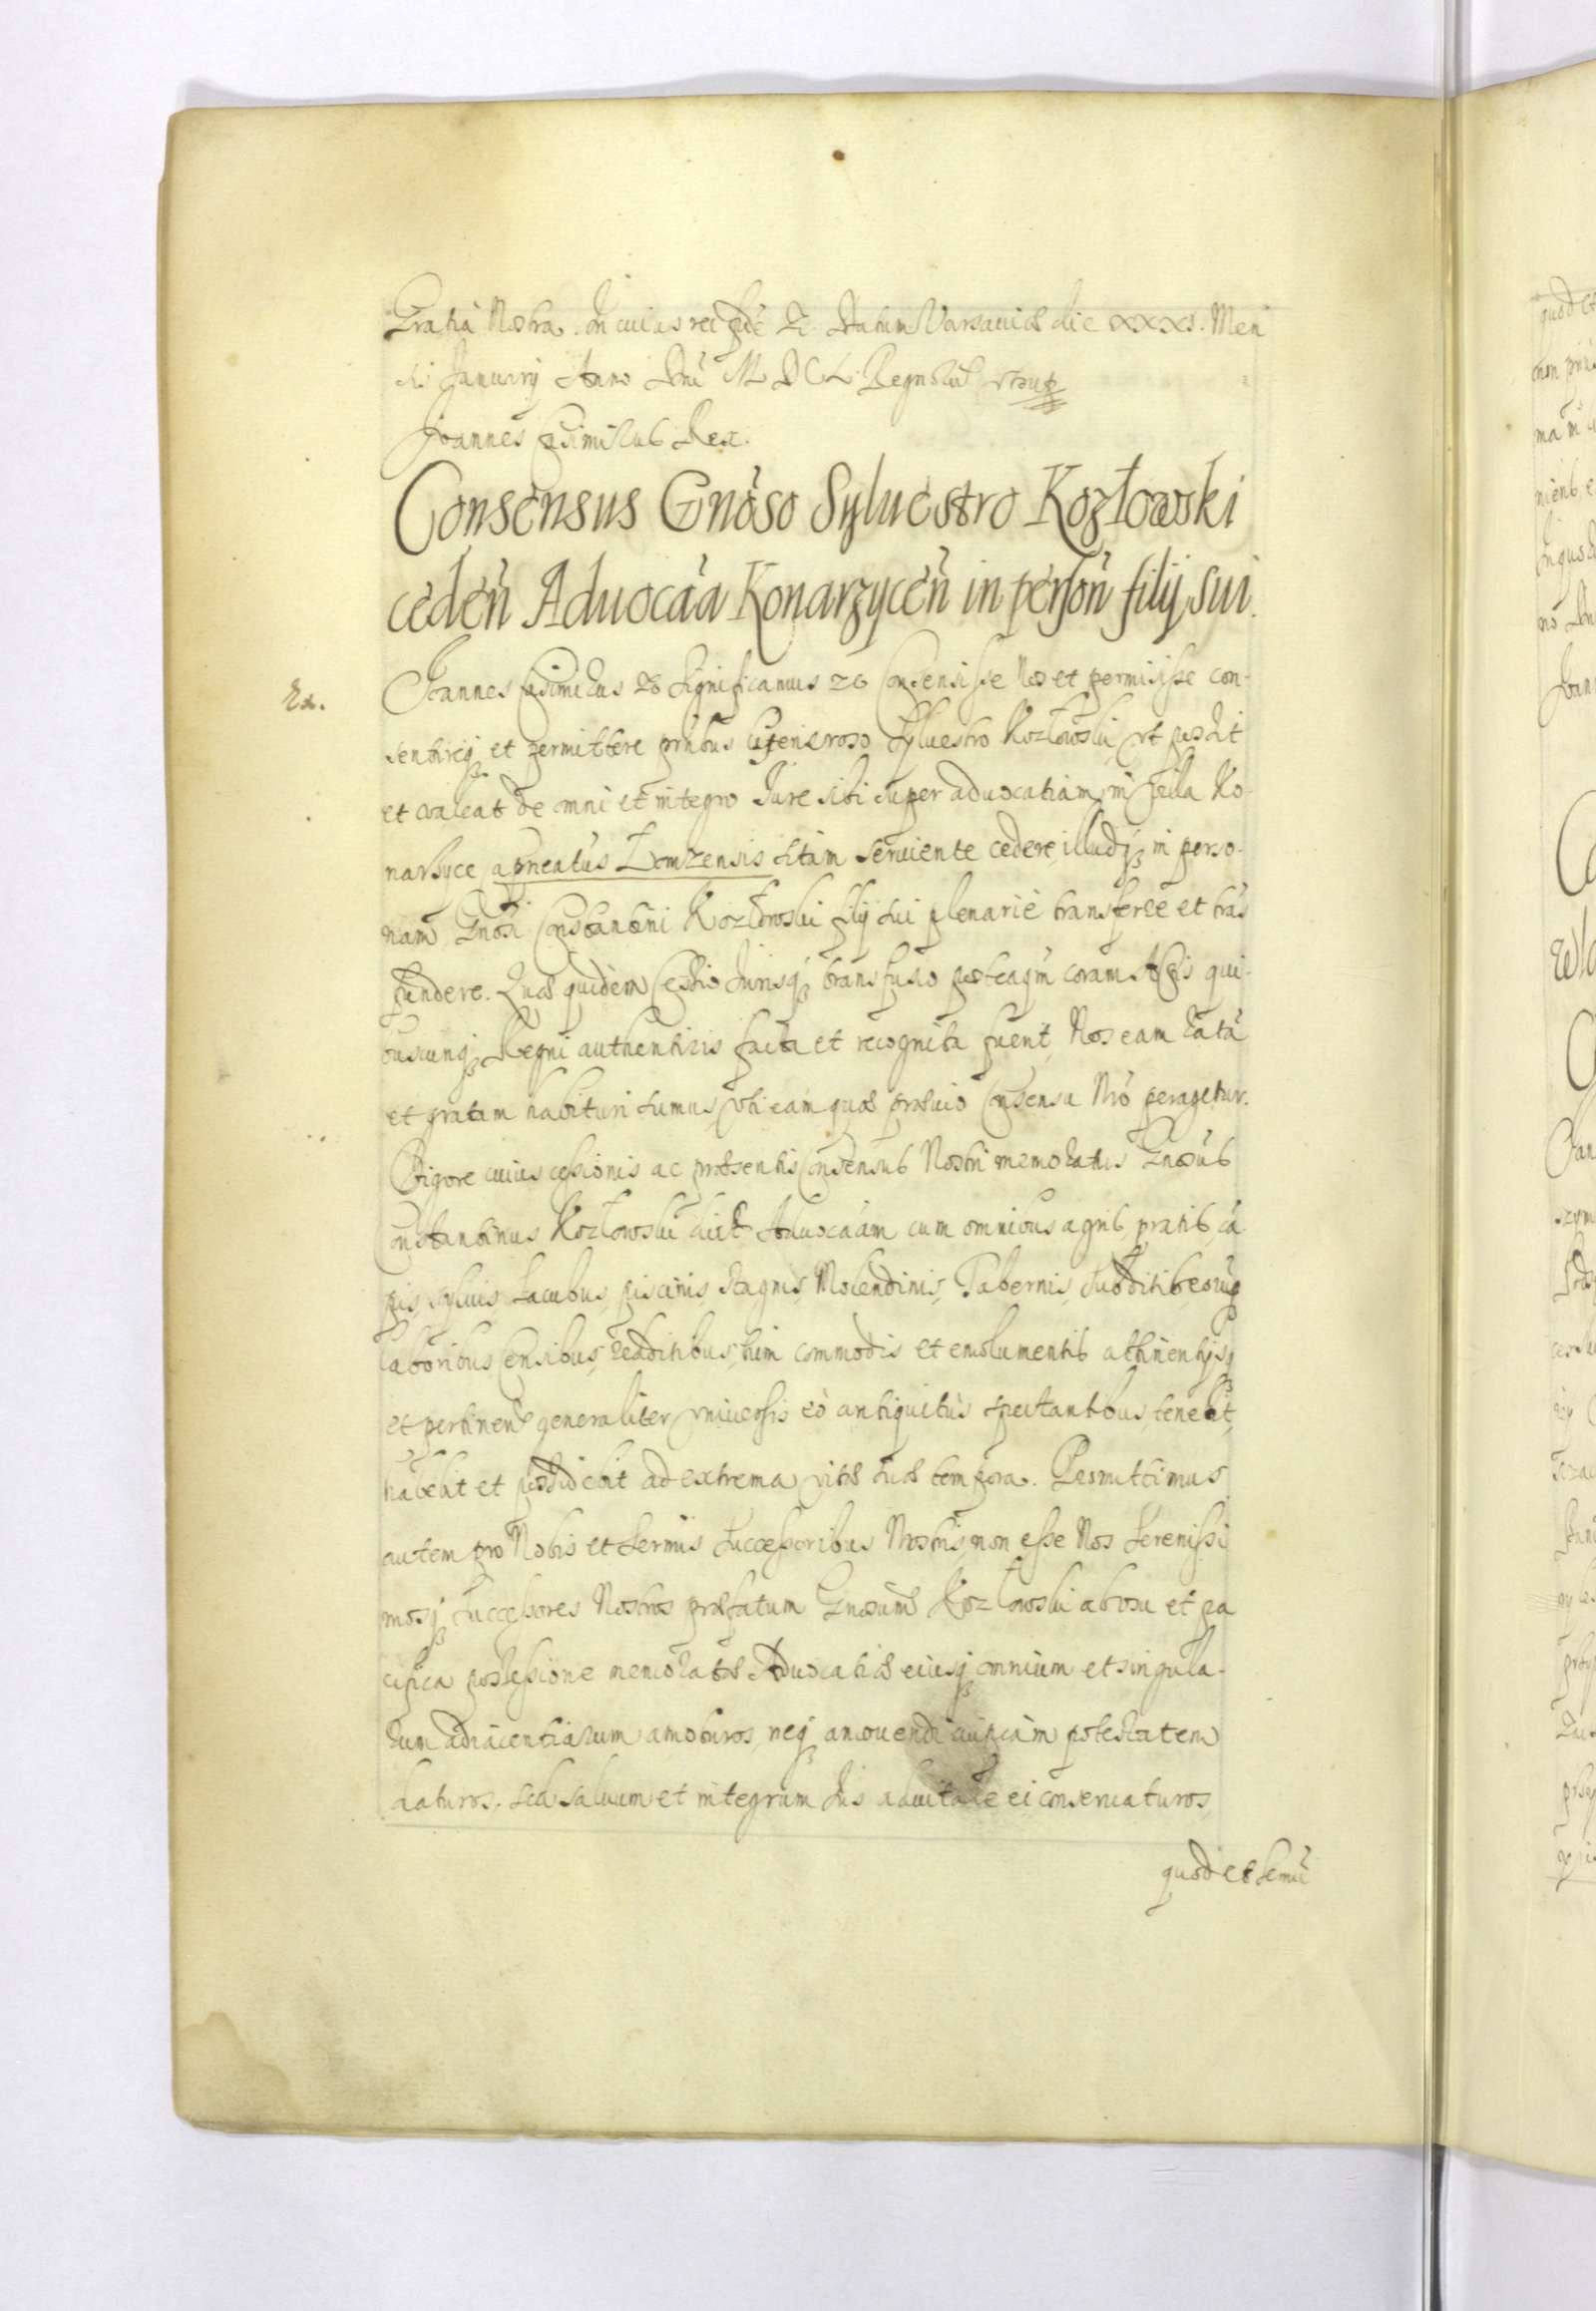 Gratia Nostra. In cuius rei fidē Etc. Datum Varsauiæ die XXXI. Men
sis Januarij Anno Dnī M D C L Regnorū vt sup
Joannes Casimirus Rex.
Consensus Gnōso Syluestro Kozłowski
cedeñ Aduocāa Konarzyceñ in persoñ filij sui.
Ex.
Joannes Casimirus Etc Significamus Etc Consensisse Nos et permisisse con-
sentireq et permittere pntibus Generoso Syluestro Kozłowski vt possit
et valeat de omni et integro Jure sibi super aduocatiam in Villa Ko-
narzyce Capneatus Łomzensis sitam seruiente cedere, illudq in perso-
nam Gnosi Constantini Kozłowski filij sui plenarie transferre et trās
fundere. Quæ quidem Cessio Jurisq transfusio posteaqm coram Actis qui-
buscunq Regni authenticis facta et recognita fuerit, Nos eam ratā
et gratam habituri sumus, vti eam quæ præuio Consensu Nrō peragetur.
Vigore cuius cessionis ac præsentis Consensus Nostri memoratus Gnosus
Constantinus Kozłowski dict Aduocāam cum omnibus agris, pratis, cā
pis, syluis, Lacubus, piscinis, stagnis, Molendinis, Tabernis, subditis eorūq
laboribus Censibus, redditibus, tum commodis et emolumentis attinentijsq
et pertinen generaliter vniuersis eò antiquitùs spectantibus, tenebit,
habebit et possidebit ad extrema vitæ suæ tempora. Permittimus
autem pro Nobis et Sermis Successoribus Nostris, non esse Nos Serenissi
mosq Successores Nostros præfatum Gnosum Kozłowski ab vsu et pa
cifica possessione memoratæ Aduocatiæ eiusq omnium et singula-
rum adiacentiarum amoturos, neq amouendi cuipiam potestatem
daturos. sed saluum et integrum Jus aduitale ei conseruaturos,
quod et Sermi